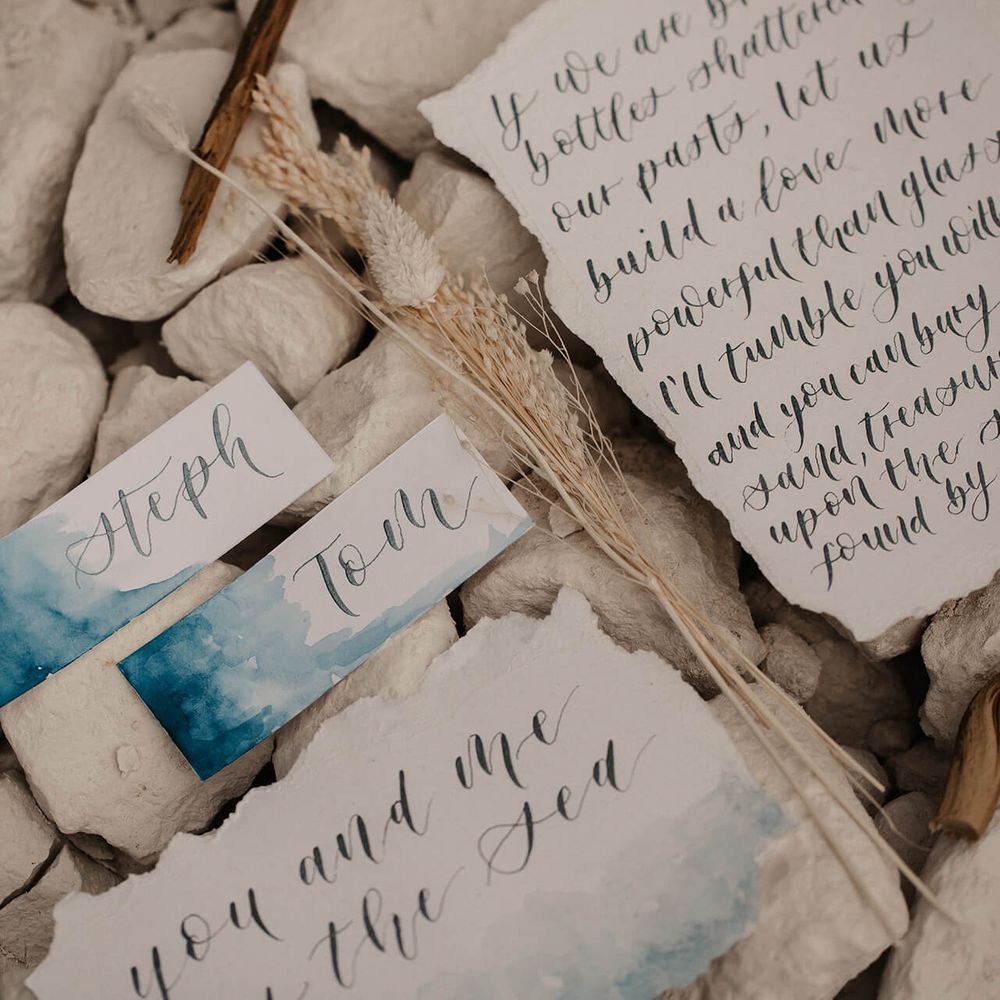 y we are
bottles shattered
our parts, let us
build a love more
powerful than glass
I'll tumble you will
and you can bury
sand, treasur
upon the s
found by
steph
Tom
you and me
the sea